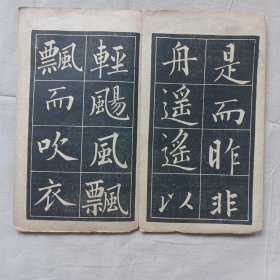 是而昨非
舟遥遥以
輕颺風飄
飄而吹衣